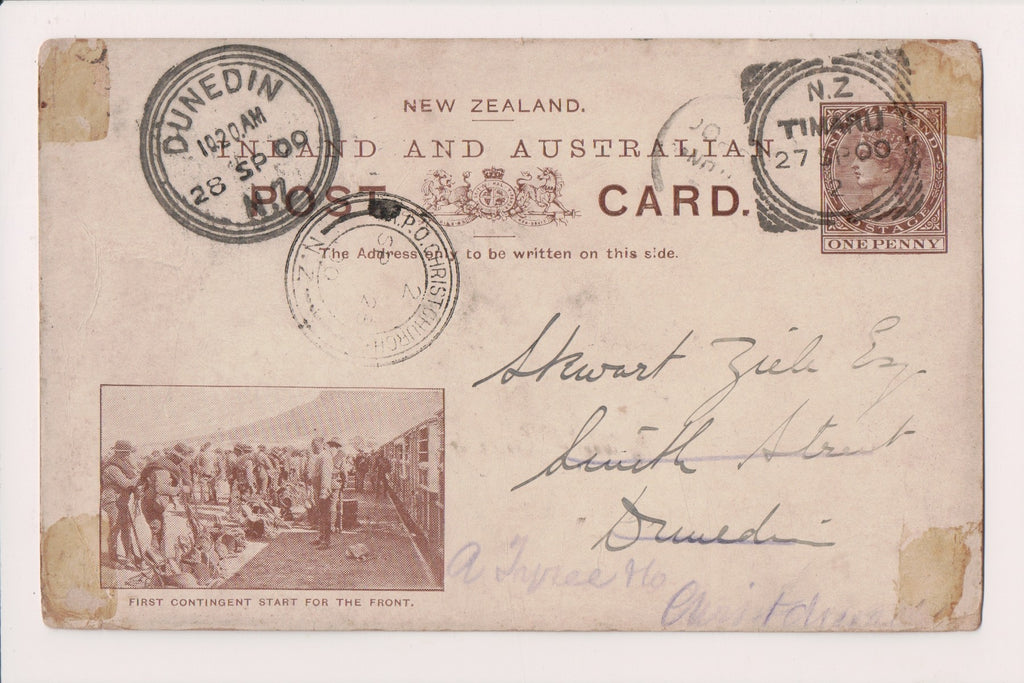 NEW ZEALAND.
INLAND AND AUSTRALIAN
POST CARD.
The Address only to be written on this side.
DUNEDIN
10 20 AM
28 SP 09
N.Z
N.Z
TIMARU
27 SP 00
2
ONE PENNY
P.O. CHRISTCHURCH
N.Z
Esq
Smith Street
Dunedin
A
Christchurch
FIRST CONTINGENT START FOR THE FRONT.